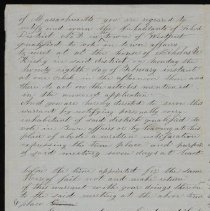 of Massachusetts you are required to
and warn the inhabitants of School
District No. 2 in town of Westford
qualified to vote in town affairs
to meet at the house of
in said district on Monday the
twenty eighth day of February instant
at one o'clock in the afternoon then and
there to act on the articles mentioned
in the annexed application
And you are hereby directed to serve this
warrant by notifying personally every
inhabitant of said district qualified to
vote in town affairs or by leaving at his
place of abode a written notification
expressing the time place and purpose
of said meeting seven days at least
before the time appointed for the same
Hereof fail not and make return
of this warrant with your doings therein
at the said meeting at the above time
place